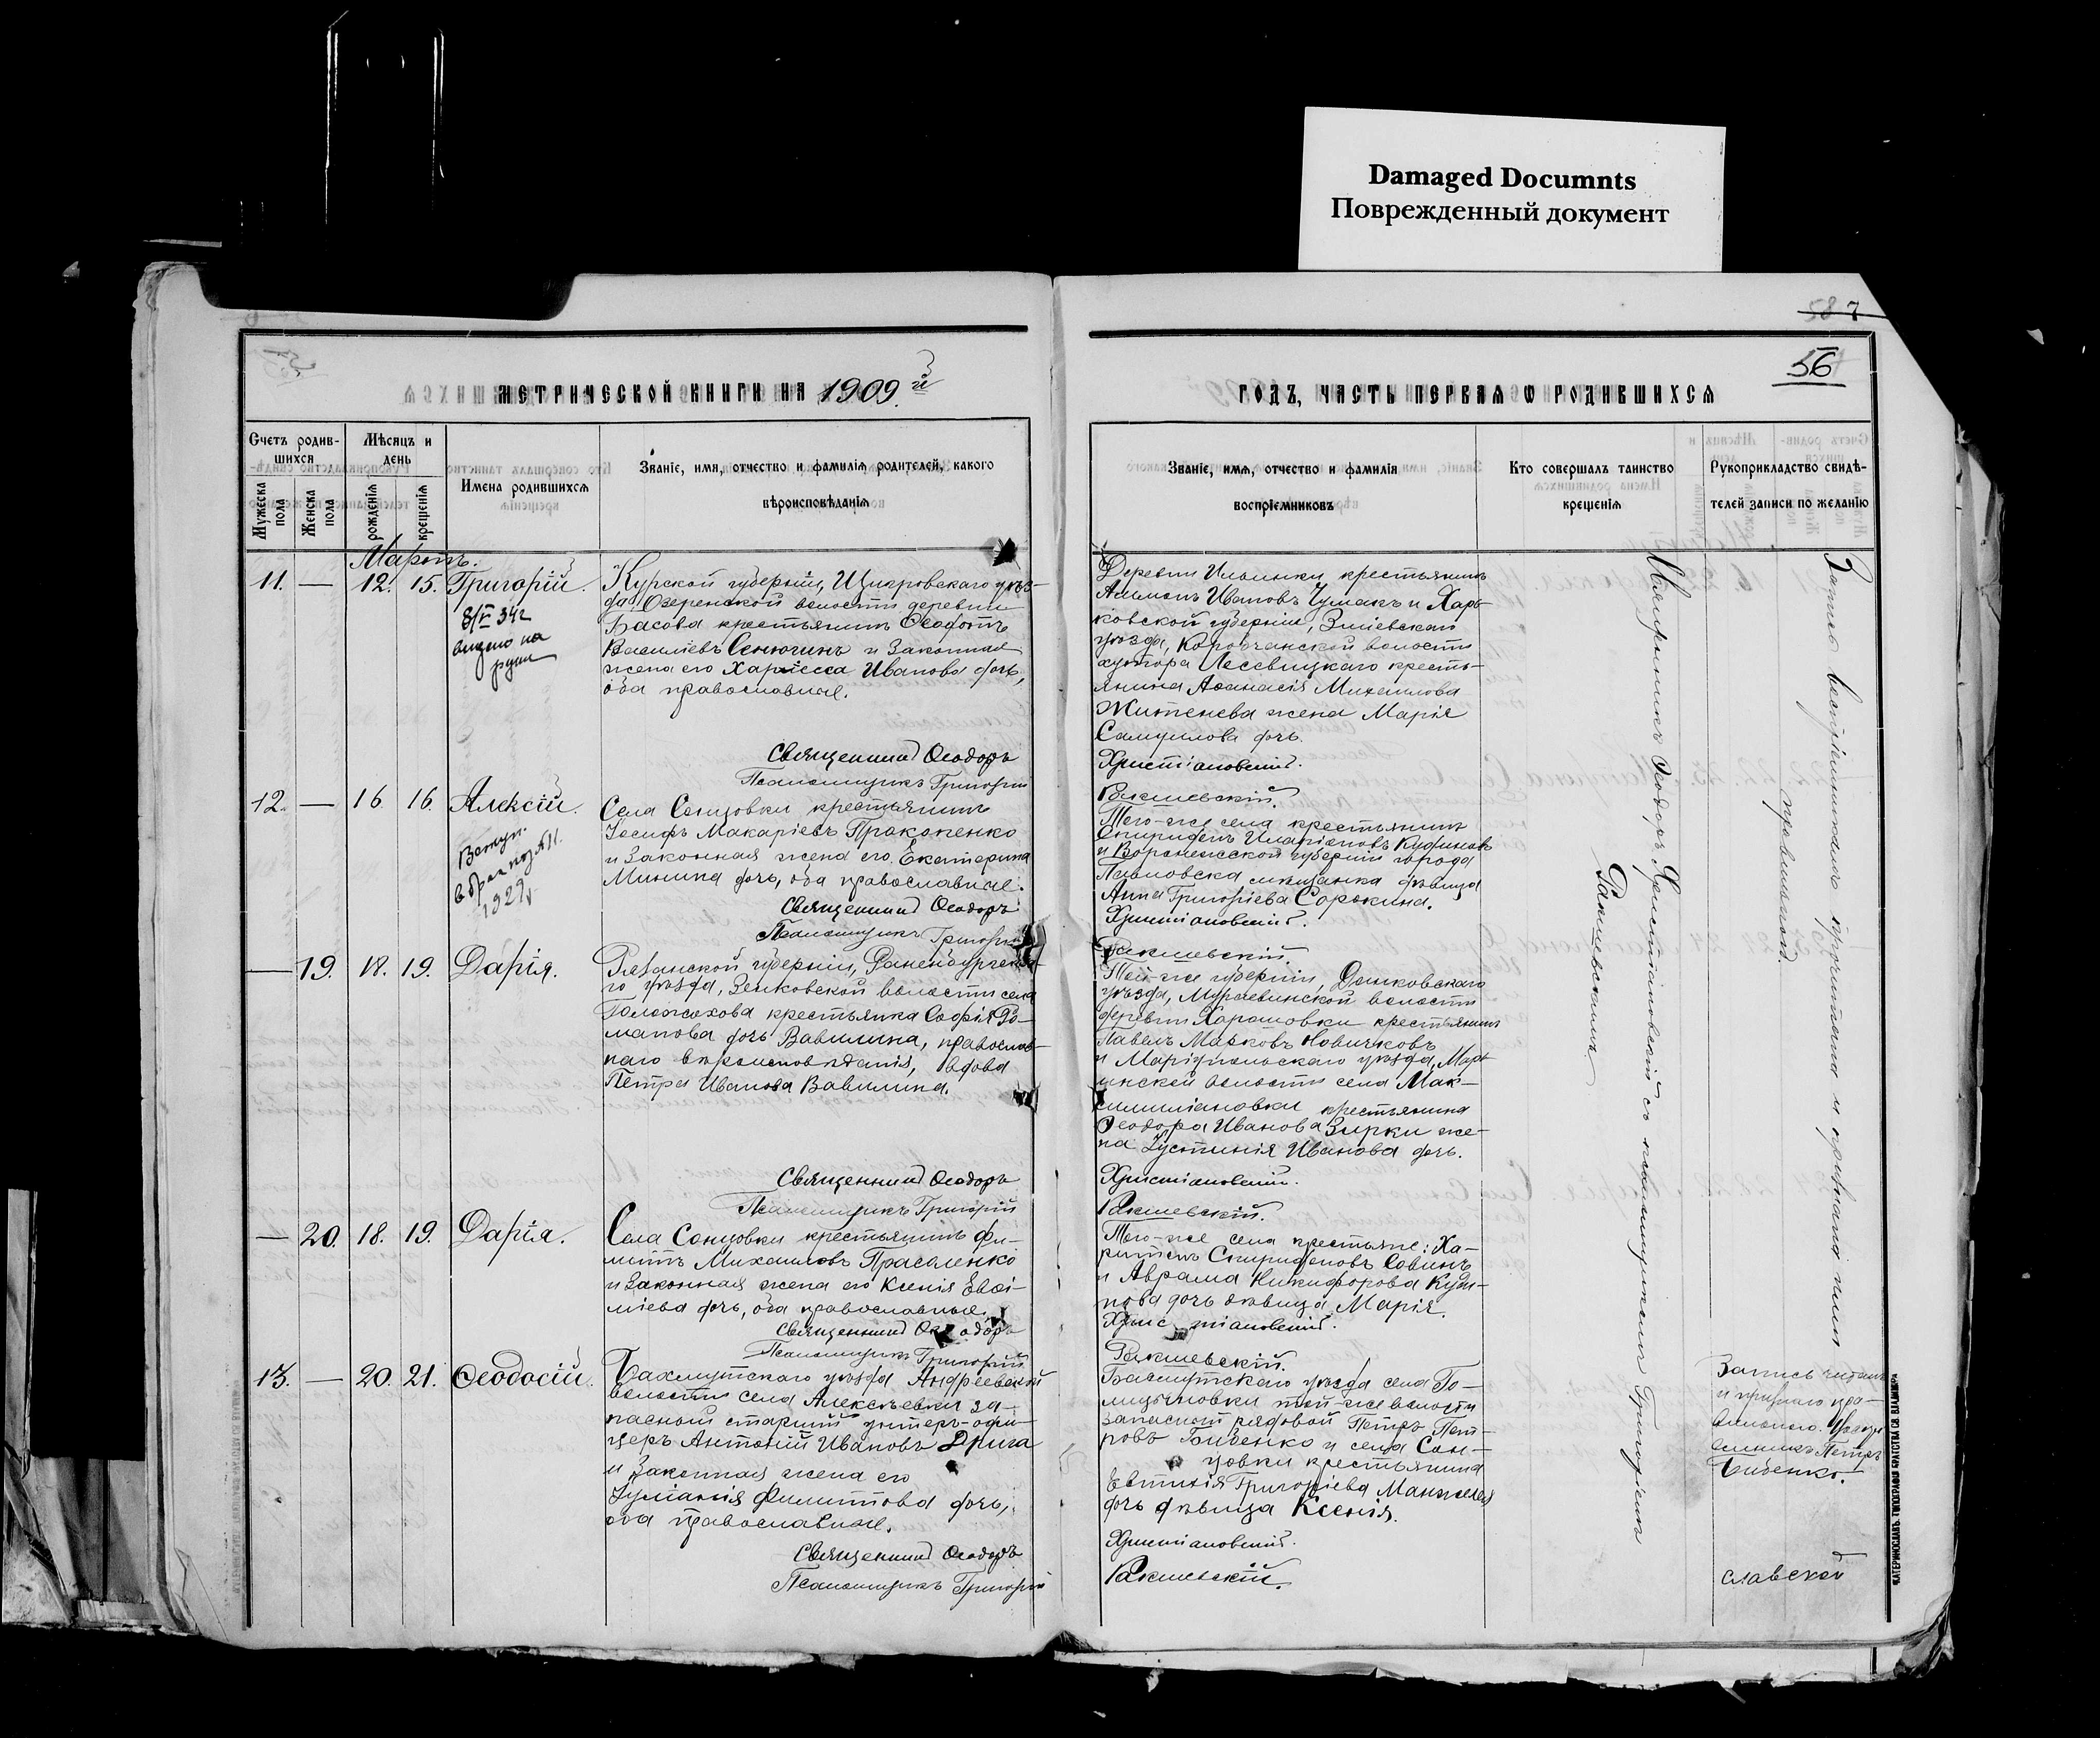 Damaged Documnts
Поврежденный документ
58 7
56
МЕТРИЧЕСКОЙ КНИГИ НА 1909.й
ГОДЪ, ЧАСТЬ ПЕРВАЯ Ѡ РОДИВШИХСЯ
Счетъ родив-
шихся
Мужеска пола
Женска пола
Мѣсяцъ и
день
рожденія
крещенія
Имена родившихся
Званіе, имя, отчество и фамилія родителей, какого
вѣроисповѣданія
Званіе, имя, отчество и фамилія
воспріемниковъ
Кто совершалъ таинство
крещенія
Рукоприкладство свидѣ-
телей записи по желанію
Мартъ.
11. — 12. 15. Григорій.
8/V 34г
видано на
руки
Курской губерніи, Щигровскаго уѣз-
да, Озеренской волости деревни
Басова крестьянинъ Ѳеофотъ
Василіевъ Сенюгинъ и законная
жена его Харіесса Иванова дочь,
оба православные.
Священникъ Ѳеодоръ
Псаломщикъ Григорій
Деревни Ильинки крестьянинъ
Ивановъ Чумакъ и Харь-
ковской губерніи, Зміевскаго
уѣзда, волости
хутора Лесевицкаго кресть-
янина Аѳанасія Михаилова
Житенева жена Марія
Самуилова дочь.
Христіановскій.
Ракшевскій.
12. — 16. 16. Алексій.
Вступ.
в брак
1929
Села Сонцовки крестьянинъ
Іосифъ Макаріевъ Прокопенко
и законная жена его Екатерина
Минина дочь, оба православные.
Священникъ Ѳеодоръ
Псаломщикъ Григорій
Того-же села крестьянинъ
Спиридонъ Иларіоновъ Кудиновъ
и Воронежской губерніи города
Павловска мѣщанка дѣвица
Анна Григоріева Сорокина.
Христіановскій.
Ракшевскій.
— 19. 18. 19. Дарія.
Рязанской губерніи, Раненбургска-
го уѣзда, Зенковской волости села
крестьянка Софія Ро-
манова дочь Вавилина, православ-
наго вѣроисповѣданія, вдова
Петра Иванова Вавилина.
Священникъ Ѳеодоръ
Псаломщикъ Григорій
Той-же губерніи, Данковскаго
уѣзда, Мураевинской волости
деревни Харашовки крестьянинъ
Павелъ Марковъ Новичковъ
и Маріупольскаго уѣзда, Мар-
инской волости села Мак-
симиліановки крестьянина
Ѳеодора Иванова Зирки же-
на Іустинія Иванова дочь.
Христіановскій.
Ракшевскій.
— 20. 18. 19. Дарія.
Села Сонцовки крестьянинъ Фи-
липпъ Михаиловъ Прасоленко
и законная жена его Ксенія Евѳи-
міева дочь, оба православные.
Священникъ Ѳеодоръ
Псаломщикъ Григорій
Того-же села крестьяне: Ха-
ритонъ Спиридоновъ Савинъ
и Аврама Никифорова Куди-
нова дочь дѣвица Марія.
Христіановскій.
Ракшевскій.
13. — 20. 21. Ѳеодосій.
Бахмутскаго уѣзда Андреевской
волости села Алексѣевки за-
пасный старшій унтеръ-офи-
церъ Антоній Ивановъ Дрига
и законная жена его
Іуліанія Филиппова дочь,
оба православные.
Священникъ Ѳеодоръ
Псаломщикъ Григорій
Бахмутскаго уѣзда села Го-
лицыновки той-же волости
запасной рядовой Петръ Пет-
ровъ Бибенко и села Сон-
цовки крестьянина
Евтихія Григоріева
дочь дѣвица Ксенія.
Христіановскій.
Ракшевскій.
Священникъ Ѳеодоръ Христіановскій съ псаломщикомъ Григоріемъ
Ракшевскимъ
Запись воспріемникамъ прочитана и признана ими
правильной.
Запись читалъ
и призналъ пра-
вильною.
Петръ
Бибенко.
славской
ЕКАТЕРИНОСЛАВЪ. ТИПОГРАФІЯ БРАТСТВА СВ. ВЛАДИМІРА